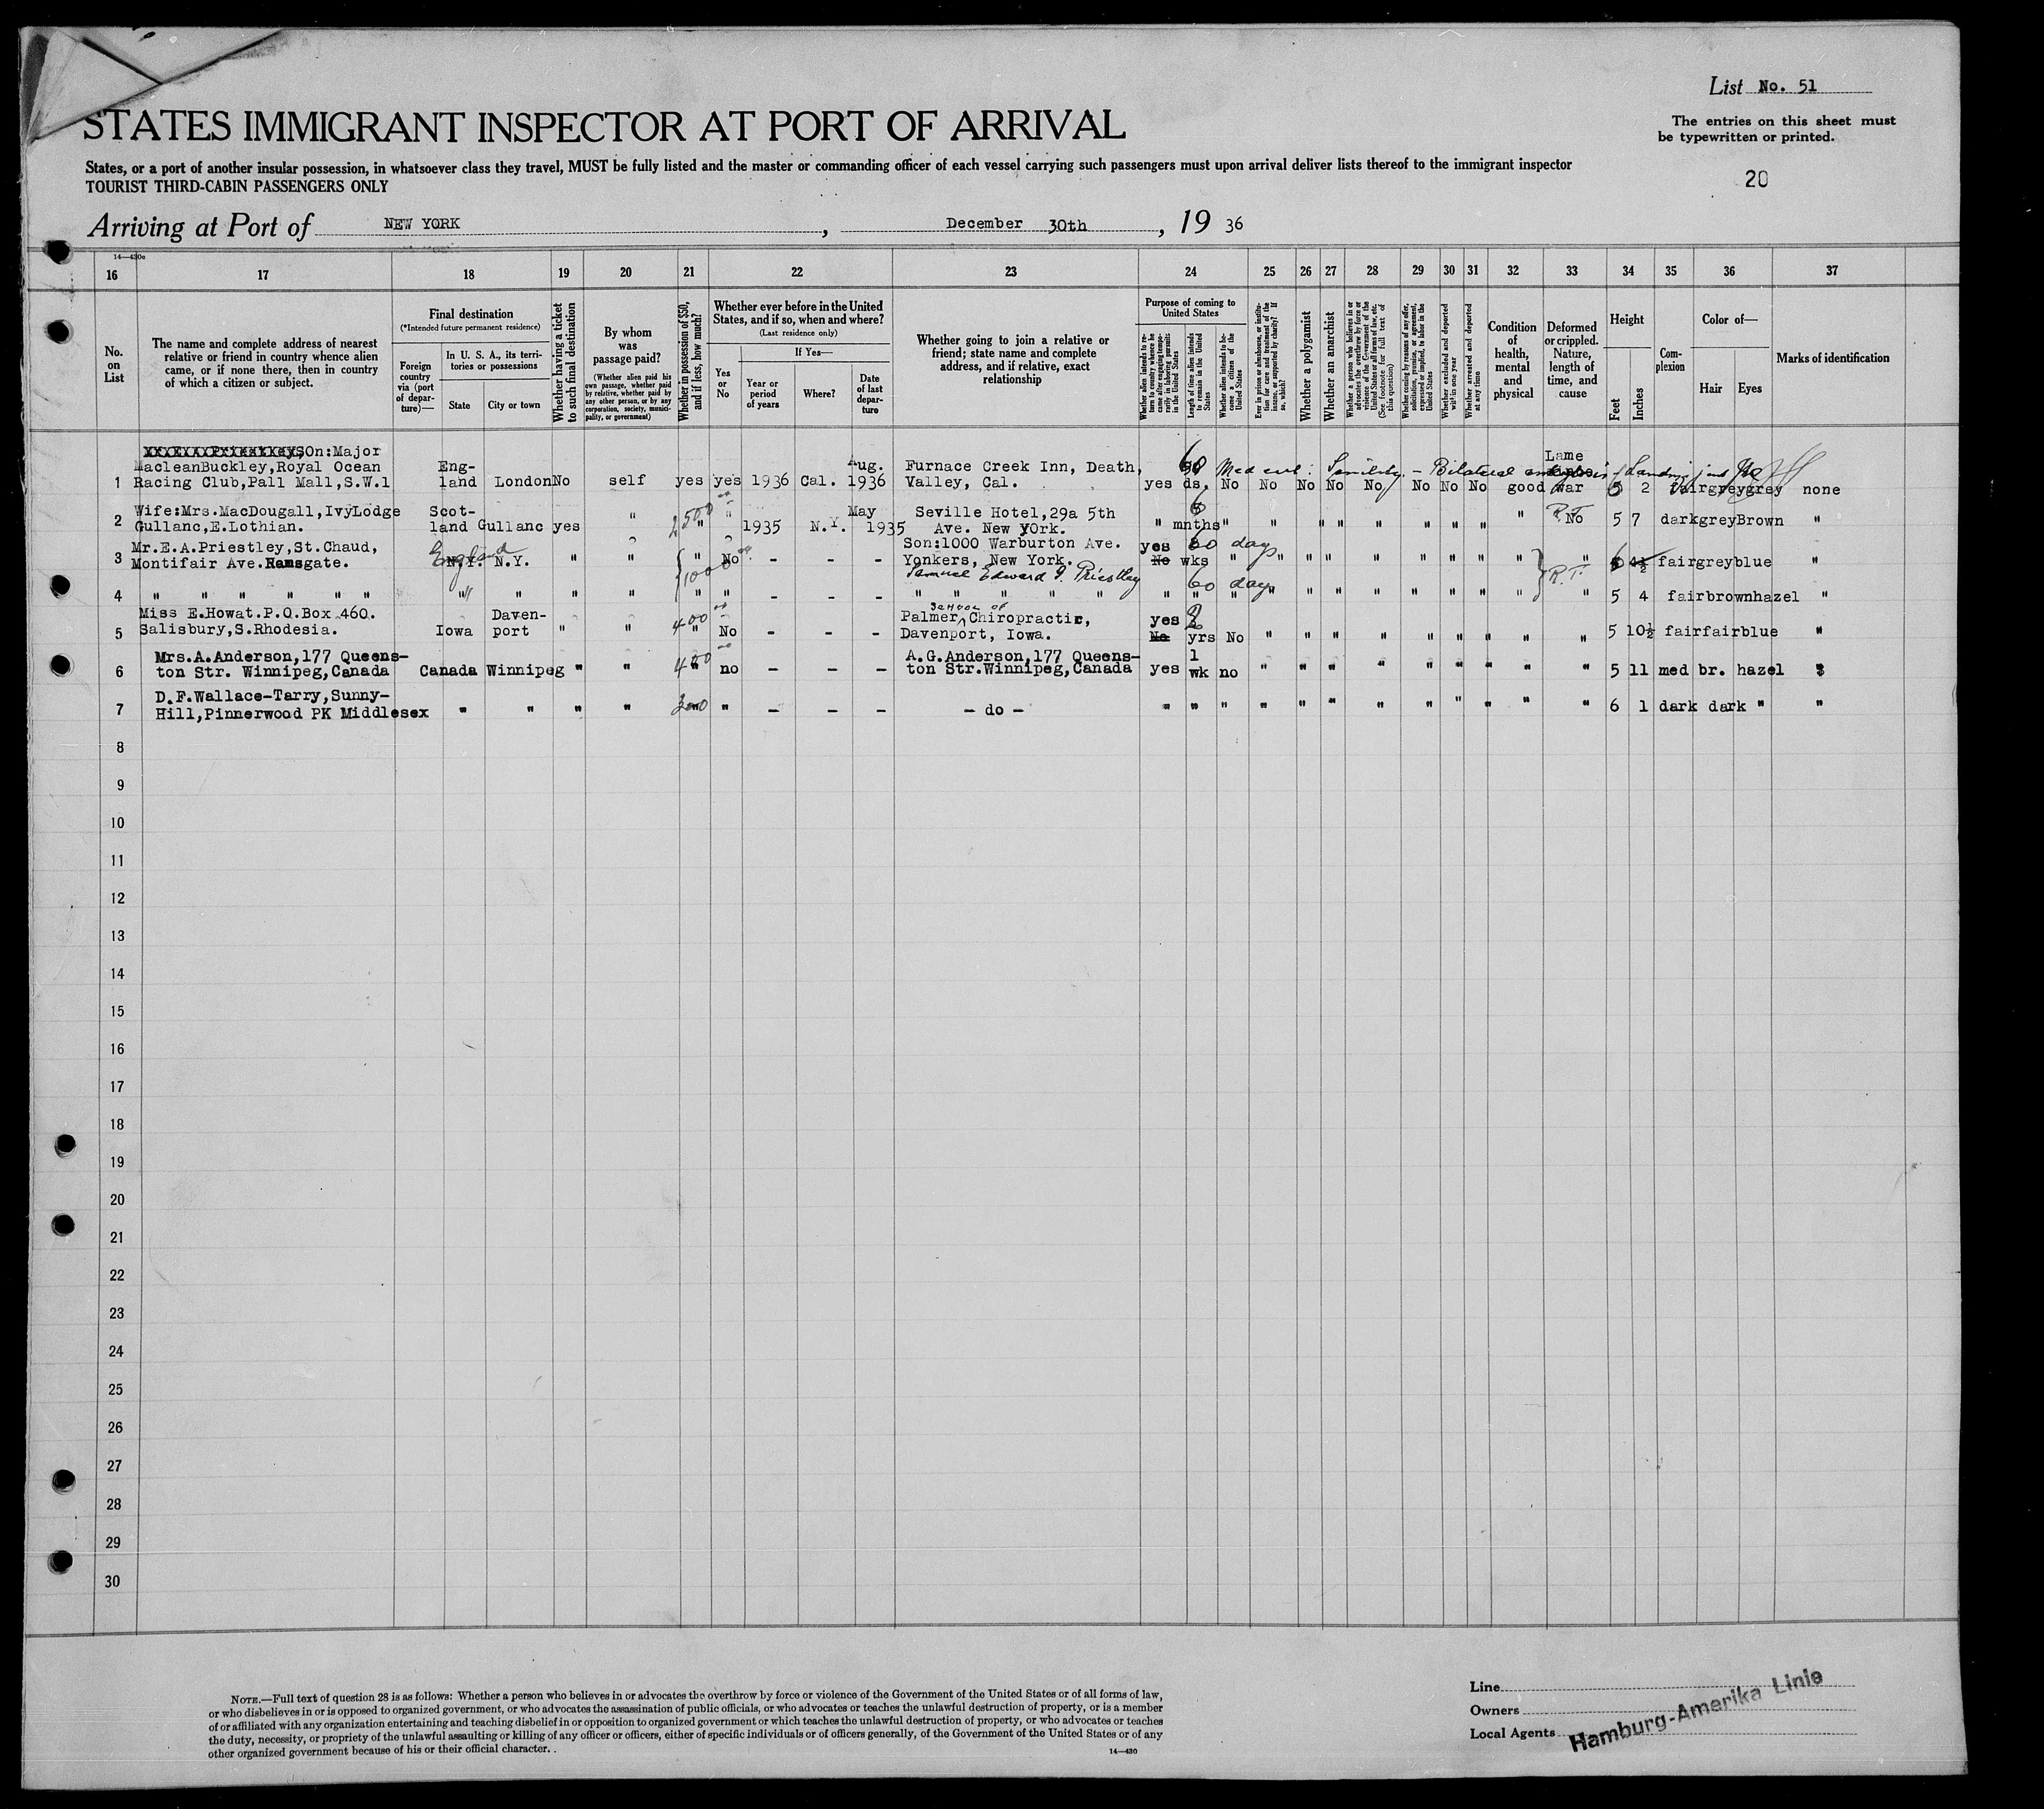 List No. 51
STATES IMMIGRANT INSPECTOR AT PORT OF ARRIVAL
The entries on this sheet must
be typewritten or printed.
States, or a port of another insular possession, in whatsoever class they travel, MUST be fully listed and the master or commanding officer of each vessel carrying such passengers must upon arrival deliver lists thereof to the immigrant inspector
TOURIST THIRD-CABIN PASSENGERS ONLY
20
Arriving at Port of NEW YORK, December 30th, 19 36
16 17 18 19 20 21 22 23 24 25 26 27 28 29 30 31 32 33 34 35 36 37
No. on List
The name and complete address of nearest
relative or friend in country whence alien
came, or if none there, then in country
of which a citizen or subject.
Final destination
(*Intended future permanent residence)
Foreign country via (port of departure)—
In U. S. A., its territories or possessions
State City or town
Whether having a ticket to such final destination
By whom was passage paid?
(Whether alien paid his own passage, whether paid by relative, whether paid by any other person, or by any corporation, society, municipality, or government)
Whether in possession of $50, and if less, how much?
Whether ever before in the United States, and if so, when and where?
(Last residence only)
Yes or No
If Yes—
Year or period of years
Where?
Date of last departure
Whether going to join a relative or
friend; state name and complete
address, and if relative, exact
relationship
Purpose of coming to United States
Length of time alien intends to remain in the United States
Whether a polygamist
Whether an anarchist
Whether excluded and deported within one year
Whether arrested and deported at any time
Condition of health, mental and physical
Deformed or crippled. Nature, length of time, and cause
Height
Feet Inches
Complexion
Color of—
Hair Eyes
Marks of identification
SOn:Major
MacleanBuckley,Royal Ocean Eng- Aug. Furnace Creek Inn, Death, Lame
1 Racing Club,Pall Mall,S.W.1 land London No self yes yes 1936 Cal. 1936 Valley, Cal. yes ds. No No No No No No No No good war 5 2 fair grey grey none
Wife:Mrs.MacDougall,IvyLodge Scot- May Seville Hotel,29a 5th 6
2 Gullanc,E.Lothian. land Gullanc yes " 2500 " 1935 N.Y. 1935 Ave. New YOrk. " mnths " " " " " " " " " No 5 7 dark grey Brown "
Mr.E.A.Priestley,St.Chaud, England Son:1000 Warburton Ave. yes 60 days
3 Montifair Ave.Ramsgate. N.Y. N.Y. " " " No - - - Yonkers, New York. No wks " " " " " " " " " " fair grey blue "
1000 Samuel Edward I. Priestley 60 days R.T.
4 " " " " " " " " " " " " - - - " " " " " " " " " " " " " " " " " " 5 4 fair brown hazel "
Miss E.Howat.P.O.Box 460. Daven- 400 School of
Palmer Chiropractic, yes 2
5 Salisbury,S.Rhodesia. Iowa port " " " No - - - Davenport, Iowa. No yrs No " " " " " " " " " 5 10½ fair fair blue "
Mrs.A.Anderson,177 Queens- A.G.Anderson,177 Queens- 1
6 ton Str. Winnipeg,Canada Canada Winnipeg " " 400 no - - - ton Str.Winnipeg,Canada yes wk no " " " " " " " " " 5 11 med br. hazel "
D.F.Wallace-Tarry,Sunny-
7 Hill,Pinnerwood PK Middlesex " " " " 300 " - - - - do - " " " " " " " " " " " " 6 1 dark dark " "
8
9
10
11
12
13
14
15
16
17
18
19
20
21
22
23
24
25
26
27
28
29
30
NOTE.—Full text of question 28 is as follows: Whether a person who believes in or advocates the overthrow by force or violence of the Government of the United States or of all forms of law,
or who disbelieves in or is opposed to organized government, or who advocates the assassination of public officials, or who advocates or teaches the unlawful destruction of property, or is a member
of or affiliated with any organization entertaining and teaching disbelief in or opposition to organized government or which teaches the unlawful destruction of property, or who advocates or teaches
the duty, necessity, or propriety of the unlawful assaulting or killing of any officer or officers, either of specific individuals or of officers generally, of the Government of the United States or of any
other organized government because of his or their official character.
14—430
Line
Owners
Local Agents
Hamburg-Amerika Linie